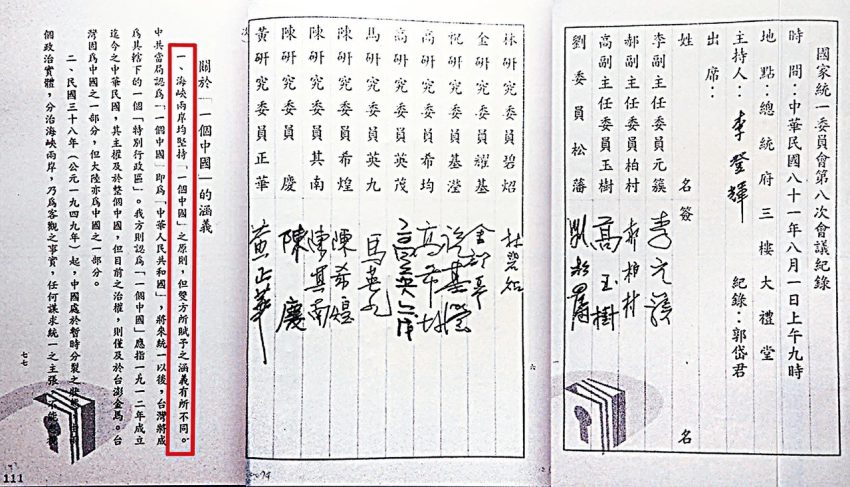 國家統一委員會第八次會議紀錄
時間：中華民國八十一年八月一日上午九時
地點：總統府三樓大禮堂
主持人：李登輝 紀錄：郭岱君
出席：
姓名 簽名
李副主任委員元簇 李元簇
郝副主任委員柏村 郝柏村
高副主任委員玉樹 高玉樹
劉委員松藩 劉松藩
林研究委員碧炤 林碧炤
金研究委員耀基 金耀基
祝研究委員基瀅 祝基瀅
高研究委員希均 高希均
高研究委員英茂 高英茂
馬研究委員英九 馬英九
陳研究委員希煌 陳希煌
陳研究委員其南 陳其南
陳研究委員慶 陳慶
黃研究委員正華 黃正華
六
關於「一個中國」的涵義
一、海峽兩岸均堅持「一個中國」之原則，但雙方所賦予之涵義有所不同。
中共當局認為「一個中國」即為「中華人民共和國」，將來統一以後，台灣將成
為其轄下的一個「特別行政區」。我方則認為「一個中國」應指一九一二年成立
迄今之中華民國，其主權及於整個中國，但目前之治權，則僅及於台澎金馬。台
灣固為中國之一部分，但大陸亦為中國之一部分。
二、民國三十八年（公元一九四九年）起，中國處於暫時分裂之狀
個政治實體，分治海峽兩岸，乃為客觀之事實，任何謀求統一之主張
七七
111